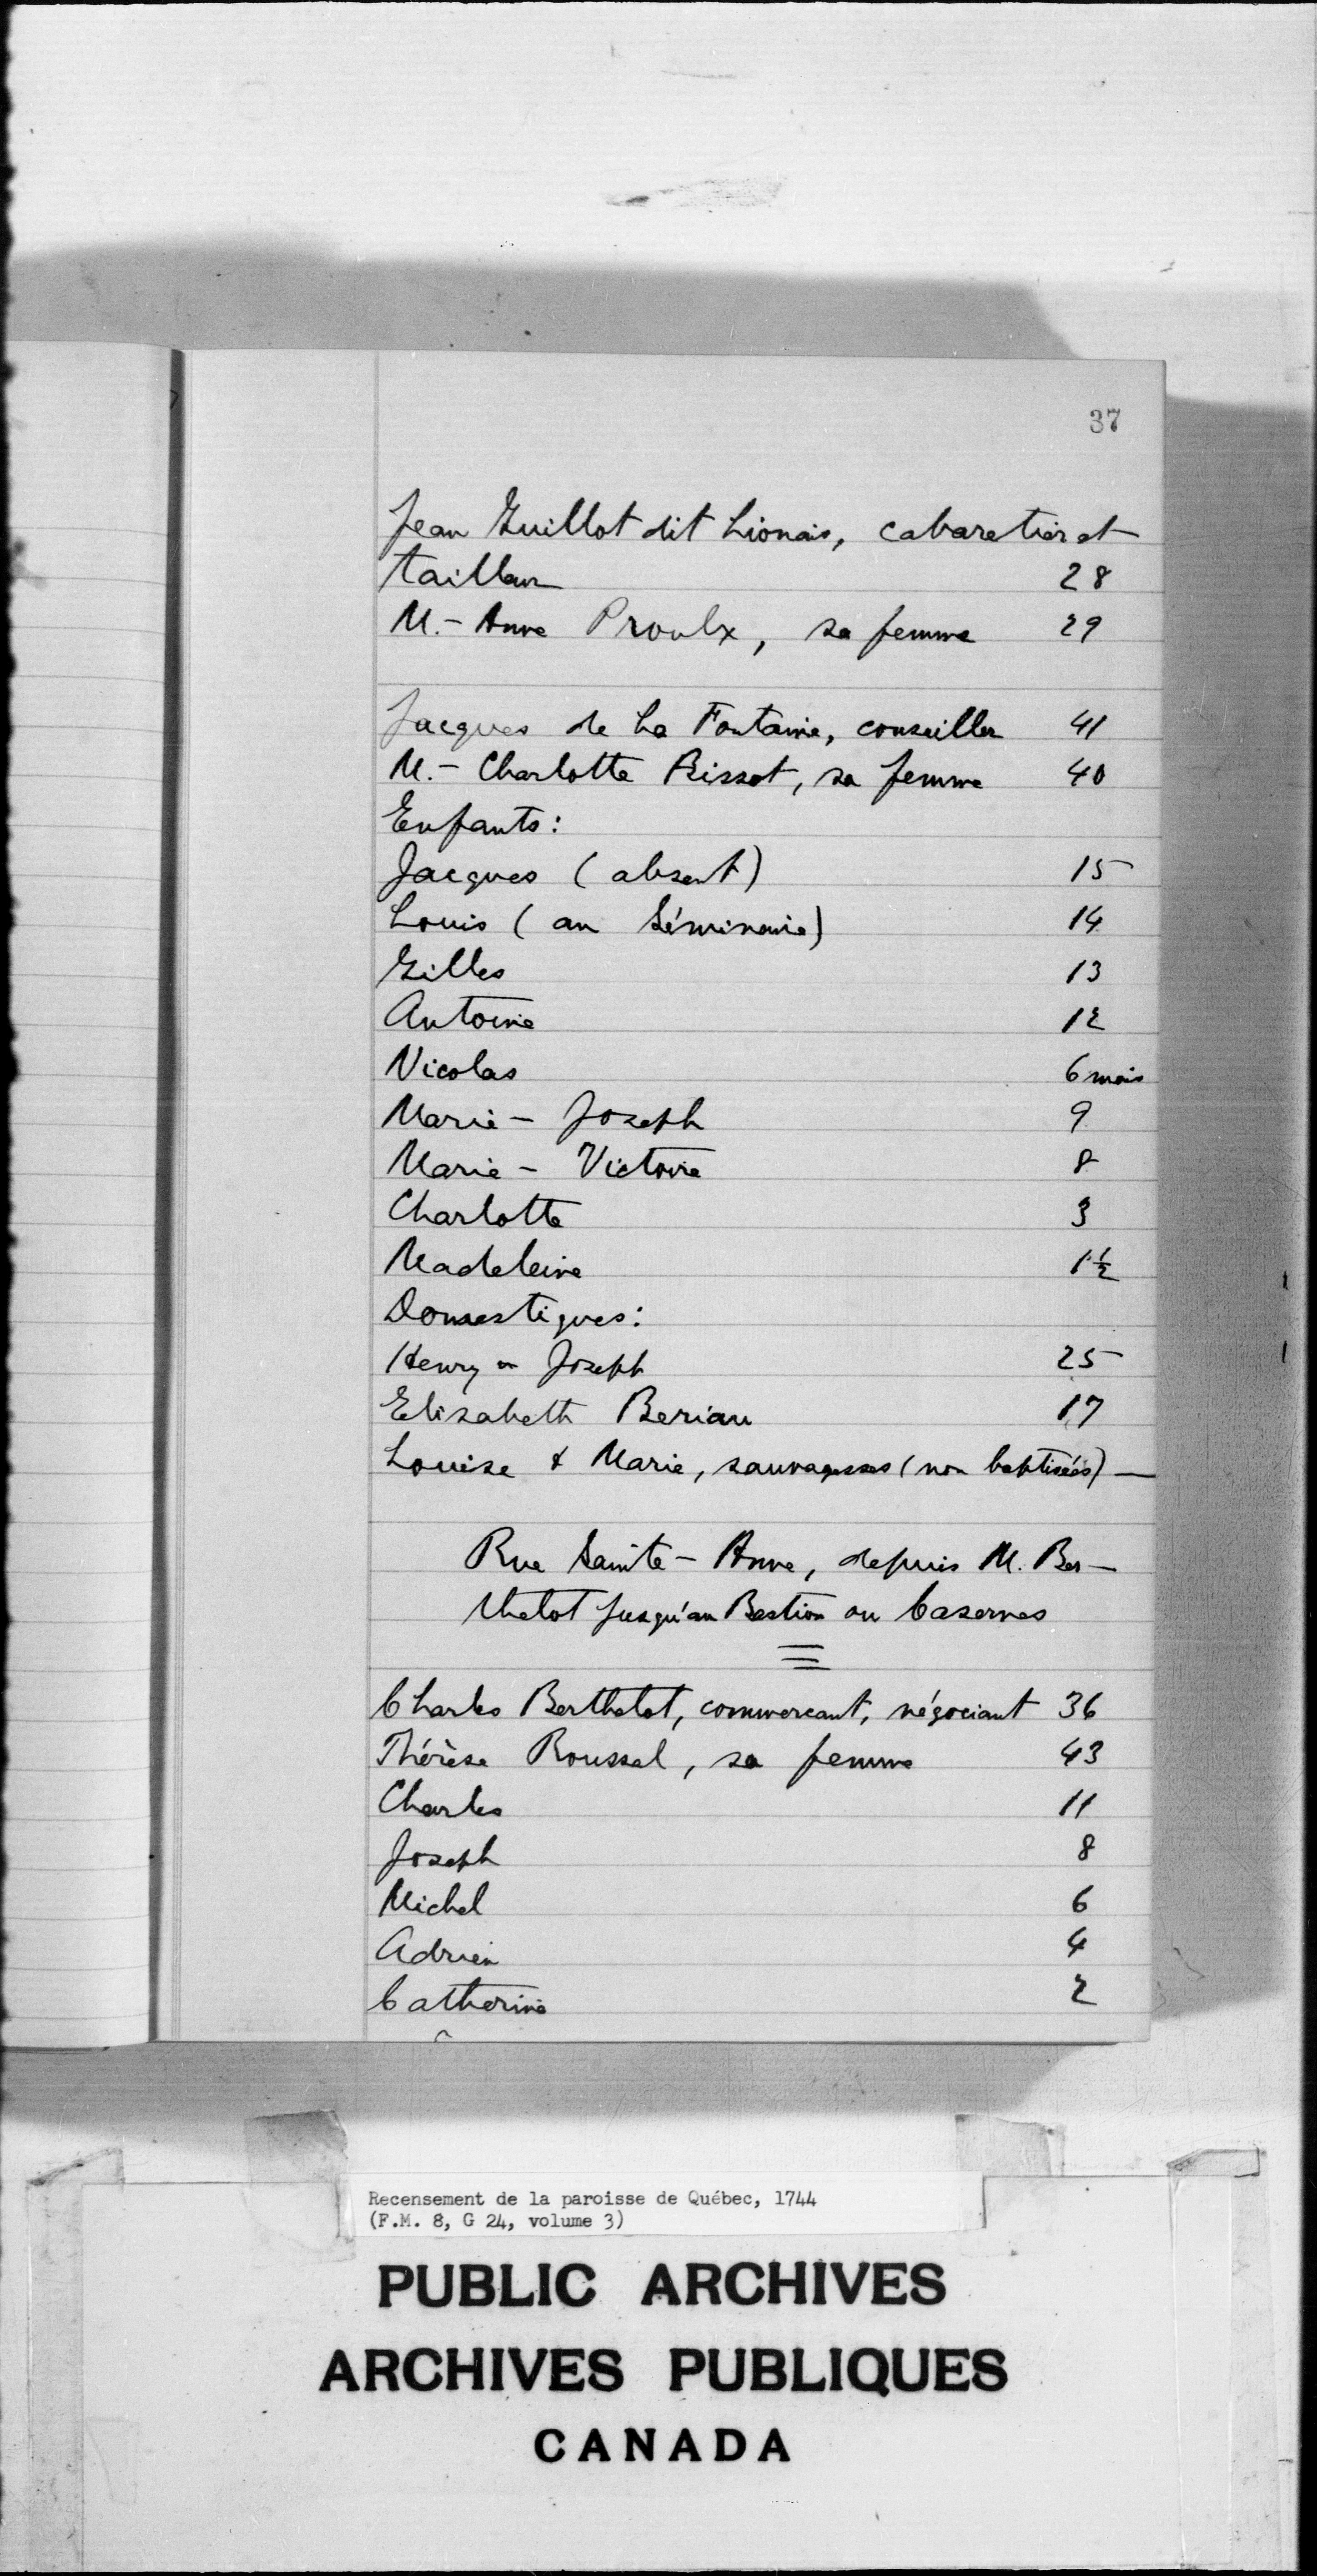 37
Jean Guillot dit Lionais, cabaretier et
tailleur 28
M.- Anne Proulx, sa femme 29
Jacques de La Fontaine, conseiller 41
M.- Charlotte Bissot, sa femme 40
Enfants:
Jacques (absent) 15
Louis (au Séminaire) 14
Gilles 13
Antoine 12
Nicolas 6 mois
Marie - Joseph 9
Marie - Victoire 8
Charlotte 3
Madeleine 1½
Domestiques:
Henry - Joseph 25
Elisabeth Beriau 17
Louise & Marie, sauvagesses (non baptisées) —
Rue Sainte - Anne, depuis M. Ber-
thelot jusqu'au Bastion ou Casernes
Charles Berthelot, commercant, négociant 36
Thérèse Roussel, sa femme 43
Charles 11
Joseph 8
Michel 6
Adrien 4
Catherine 2
Recensement de la paroisse de Québec, 1744
(F.M. 8, G 24, volume 3)
PUBLIC ARCHIVES
ARCHIVES PUBLIQUES
CANADA